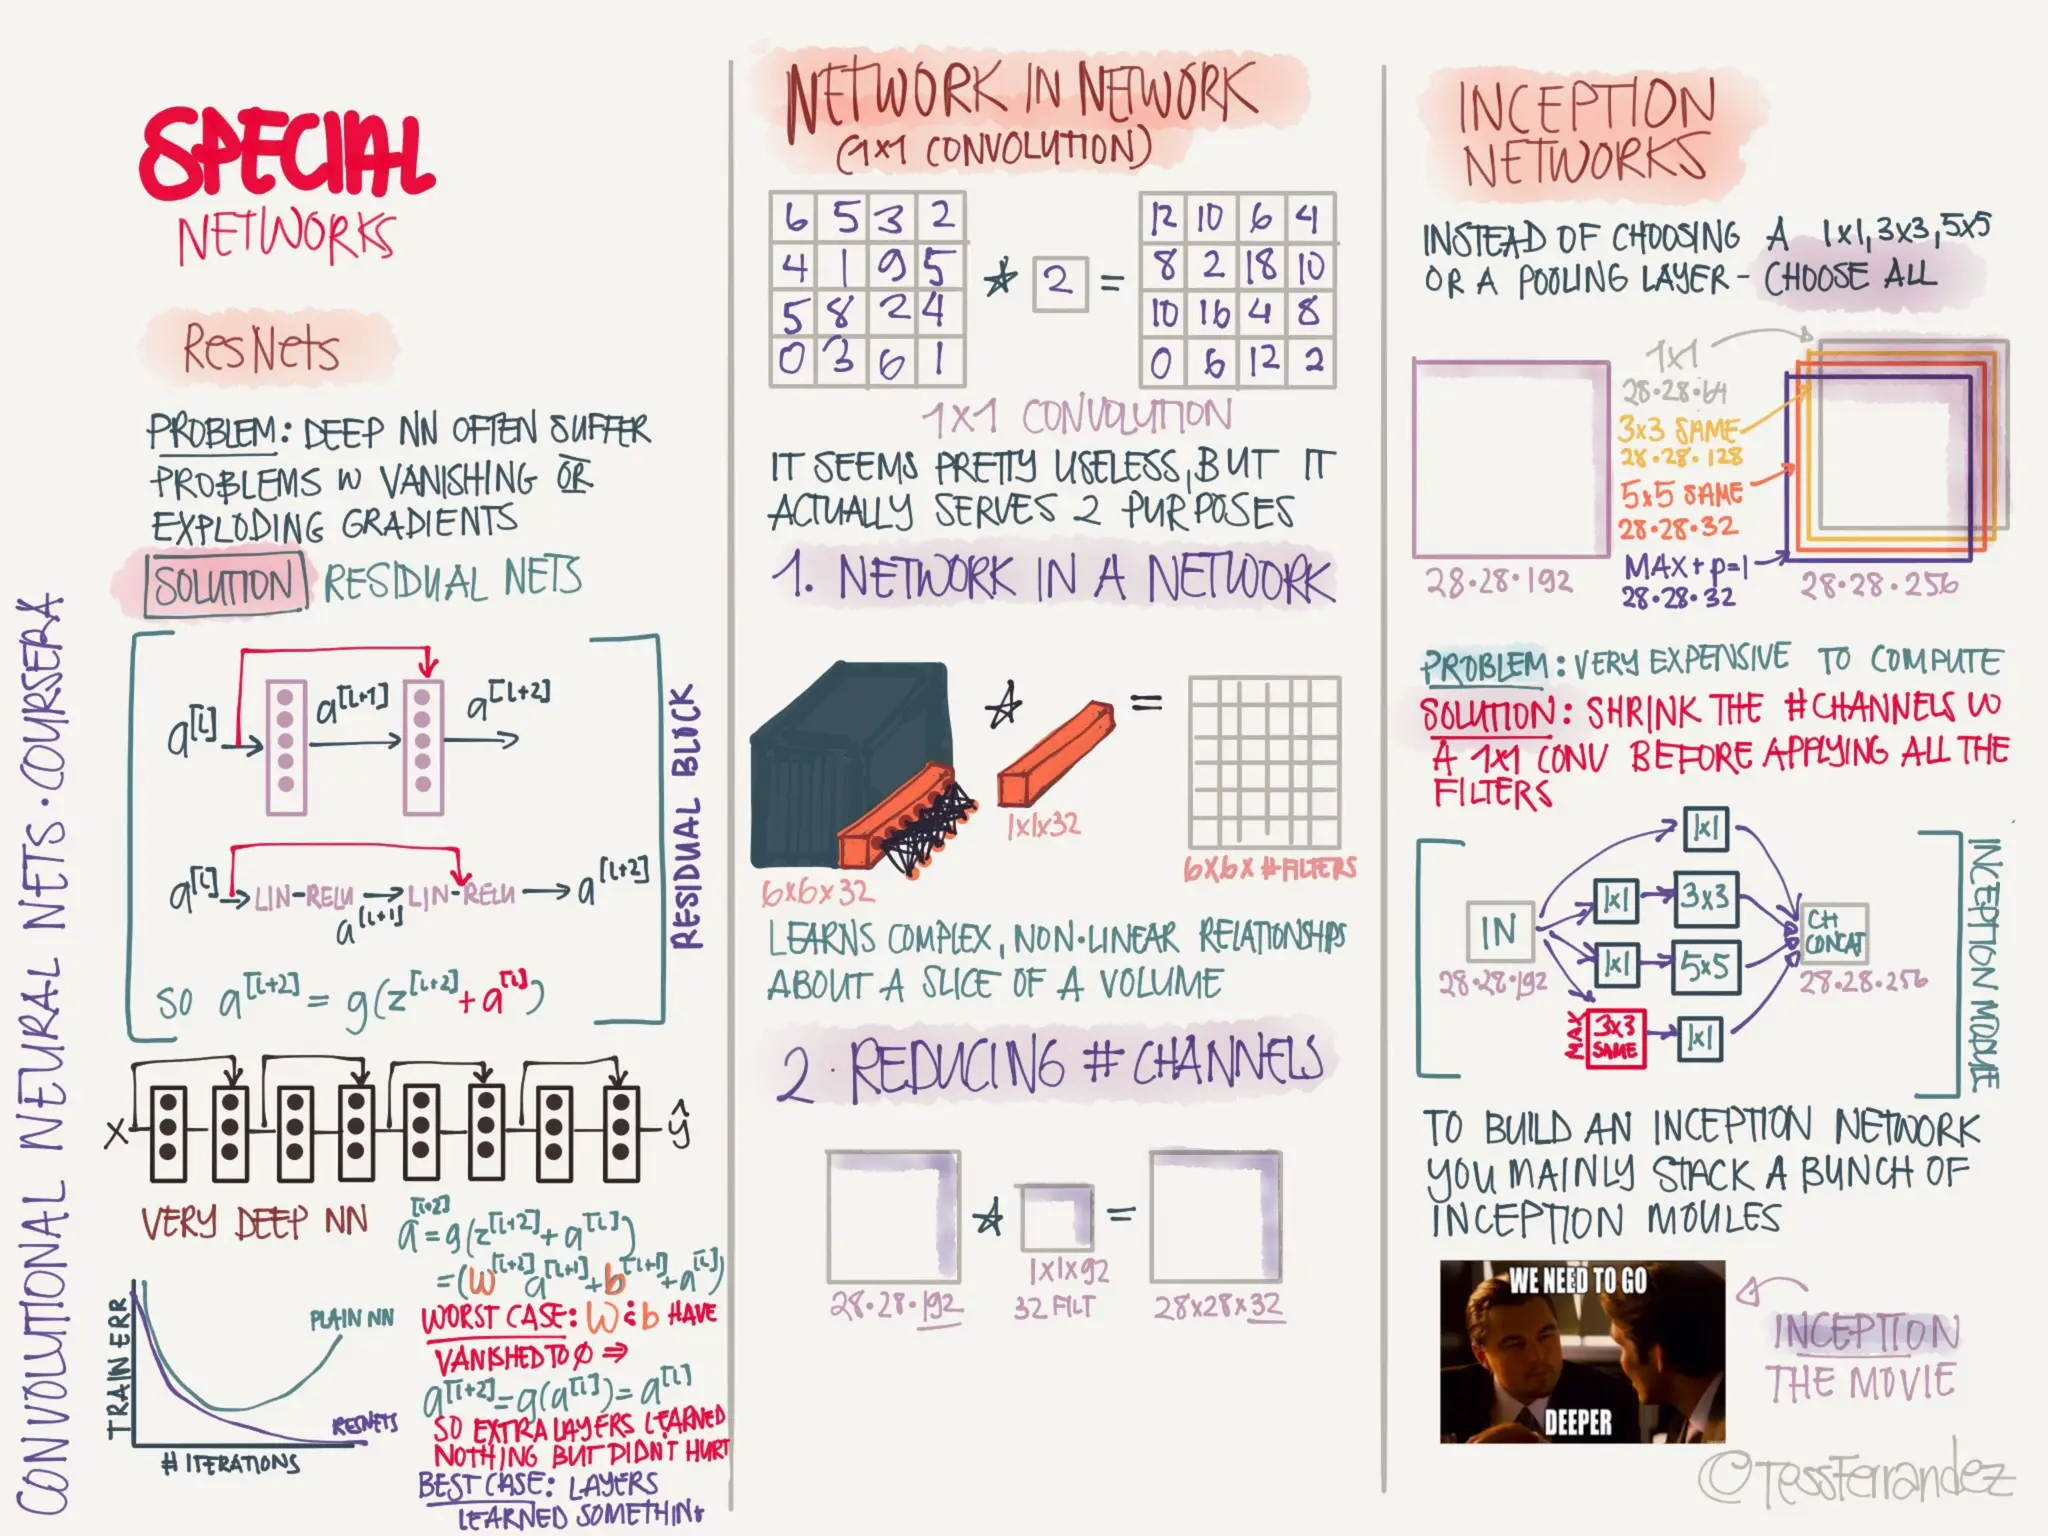 CONVOLUTIONAL NEURAL NETS · COURSERA
SPECIAL
NETWORKS
ResNets
PROBLEM: DEEP NN OFTEN SUFFER
PROBLEMS W VANISHING OR
EXPLODING GRADIENTS
SOLUTION RESIDUAL NETS
a[l] a[l+1] a[l+2]
a[l] LIN-RELU LIN-RELU a[l+2]
a[l+1]
SO a[l+2] = g(z[l+2] + a[l])
RESIDUAL BLOCK
X ŷ
VERY DEEP NN
a[l+2] = g(z[l+2] + a[l])
= (W[l+2] a[l+1] + b[l+1] + a[l])
WORST CASE: W & b HAVE
VANISHED TO Ø ⇒
a[l+2] = g(a[l]) = a[l]
SO EXTRA LAYERS LEARNED
NOTHING BUT DIDN'T HURT
BEST CASE: LAYERS
LEARNED SOMETHING
TRAIN ERR
PLAIN NN
RESNETS
# ITERATIONS
NETWORK IN NETWORK
(1x1 CONVOLUTION)
6 5 3 2
4 1 9 5
5 8 2 4
0 3 6 1
* 2 =
12 10 6 4
8 2 18 10
10 16 4 8
0 6 12 2
1x1 CONVOLUTION
IT SEEMS PRETTY USELESS, BUT IT
ACTUALLY SERVES 2 PURPOSES
1. NETWORK IN A NETWORK
* =
1x1x32
6x6x32
6x6x #FILTERS
LEARNS COMPLEX, NON·LINEAR RELATIONSHIPS
ABOUT A SLICE OF A VOLUME
2. REDUCING # CHANNELS
* =
28·28·192
1x1x92
32 FILT
28x28x32
INCEPTION
NETWORKS
INSTEAD OF CHOOSING A 1x1, 3x3, 5x5
OR A POOLING LAYER - CHOOSE ALL
1x1
28·28·64
3x3 SAME
28·28·128
5x5 SAME
28·28·32
MAX + p=1
28·28·32
28·28·192
28·28·256
PROBLEM: VERY EXPENSIVE TO COMPUTE
SOLUTION: SHRINK THE #CHANNELS W
A 1x1 CONV BEFORE APPLYING ALL THE
FILTERS
1x1
1x1 3x3
IN
CH
CONCAT
1x1 5x5
28·28·192
28·28·256
MAX
3x3
SAME
1x1
INCEPTION MODULE
TO BUILD AN INCEPTION NETWORK
YOU MAINLY STACK A BUNCH OF
INCEPTION MOULES
WE NEED TO GO
DEEPER
INCEPTION
THE MOVIE
©TessFerrandez